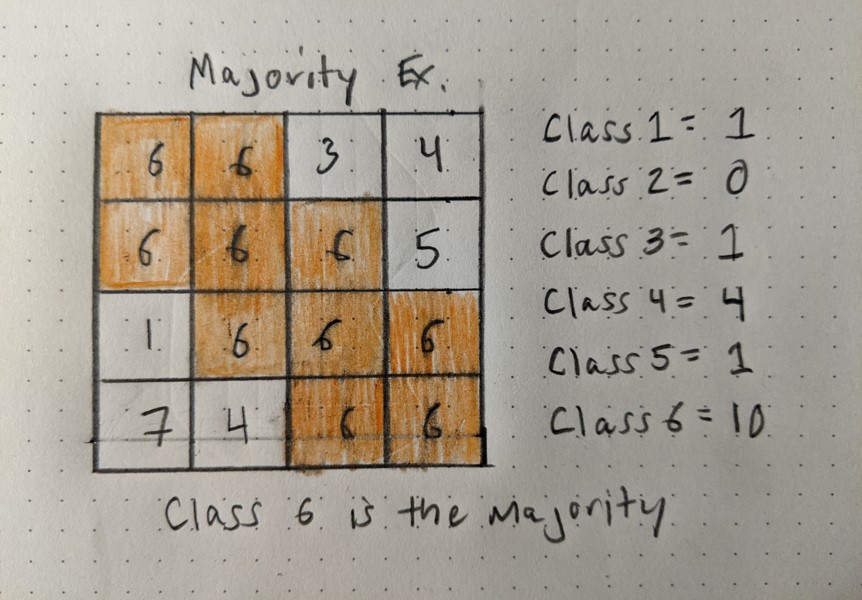 Majority Ex.
6 6 3 4
6 6 6 5
1 6 6 6
7 4 6 6
Class 1 = 1
Class 2 = 0
Class 3 = 1
Class 4 = 4
Class 5 = 1
Class 6 = 10
Class 6 is the majority